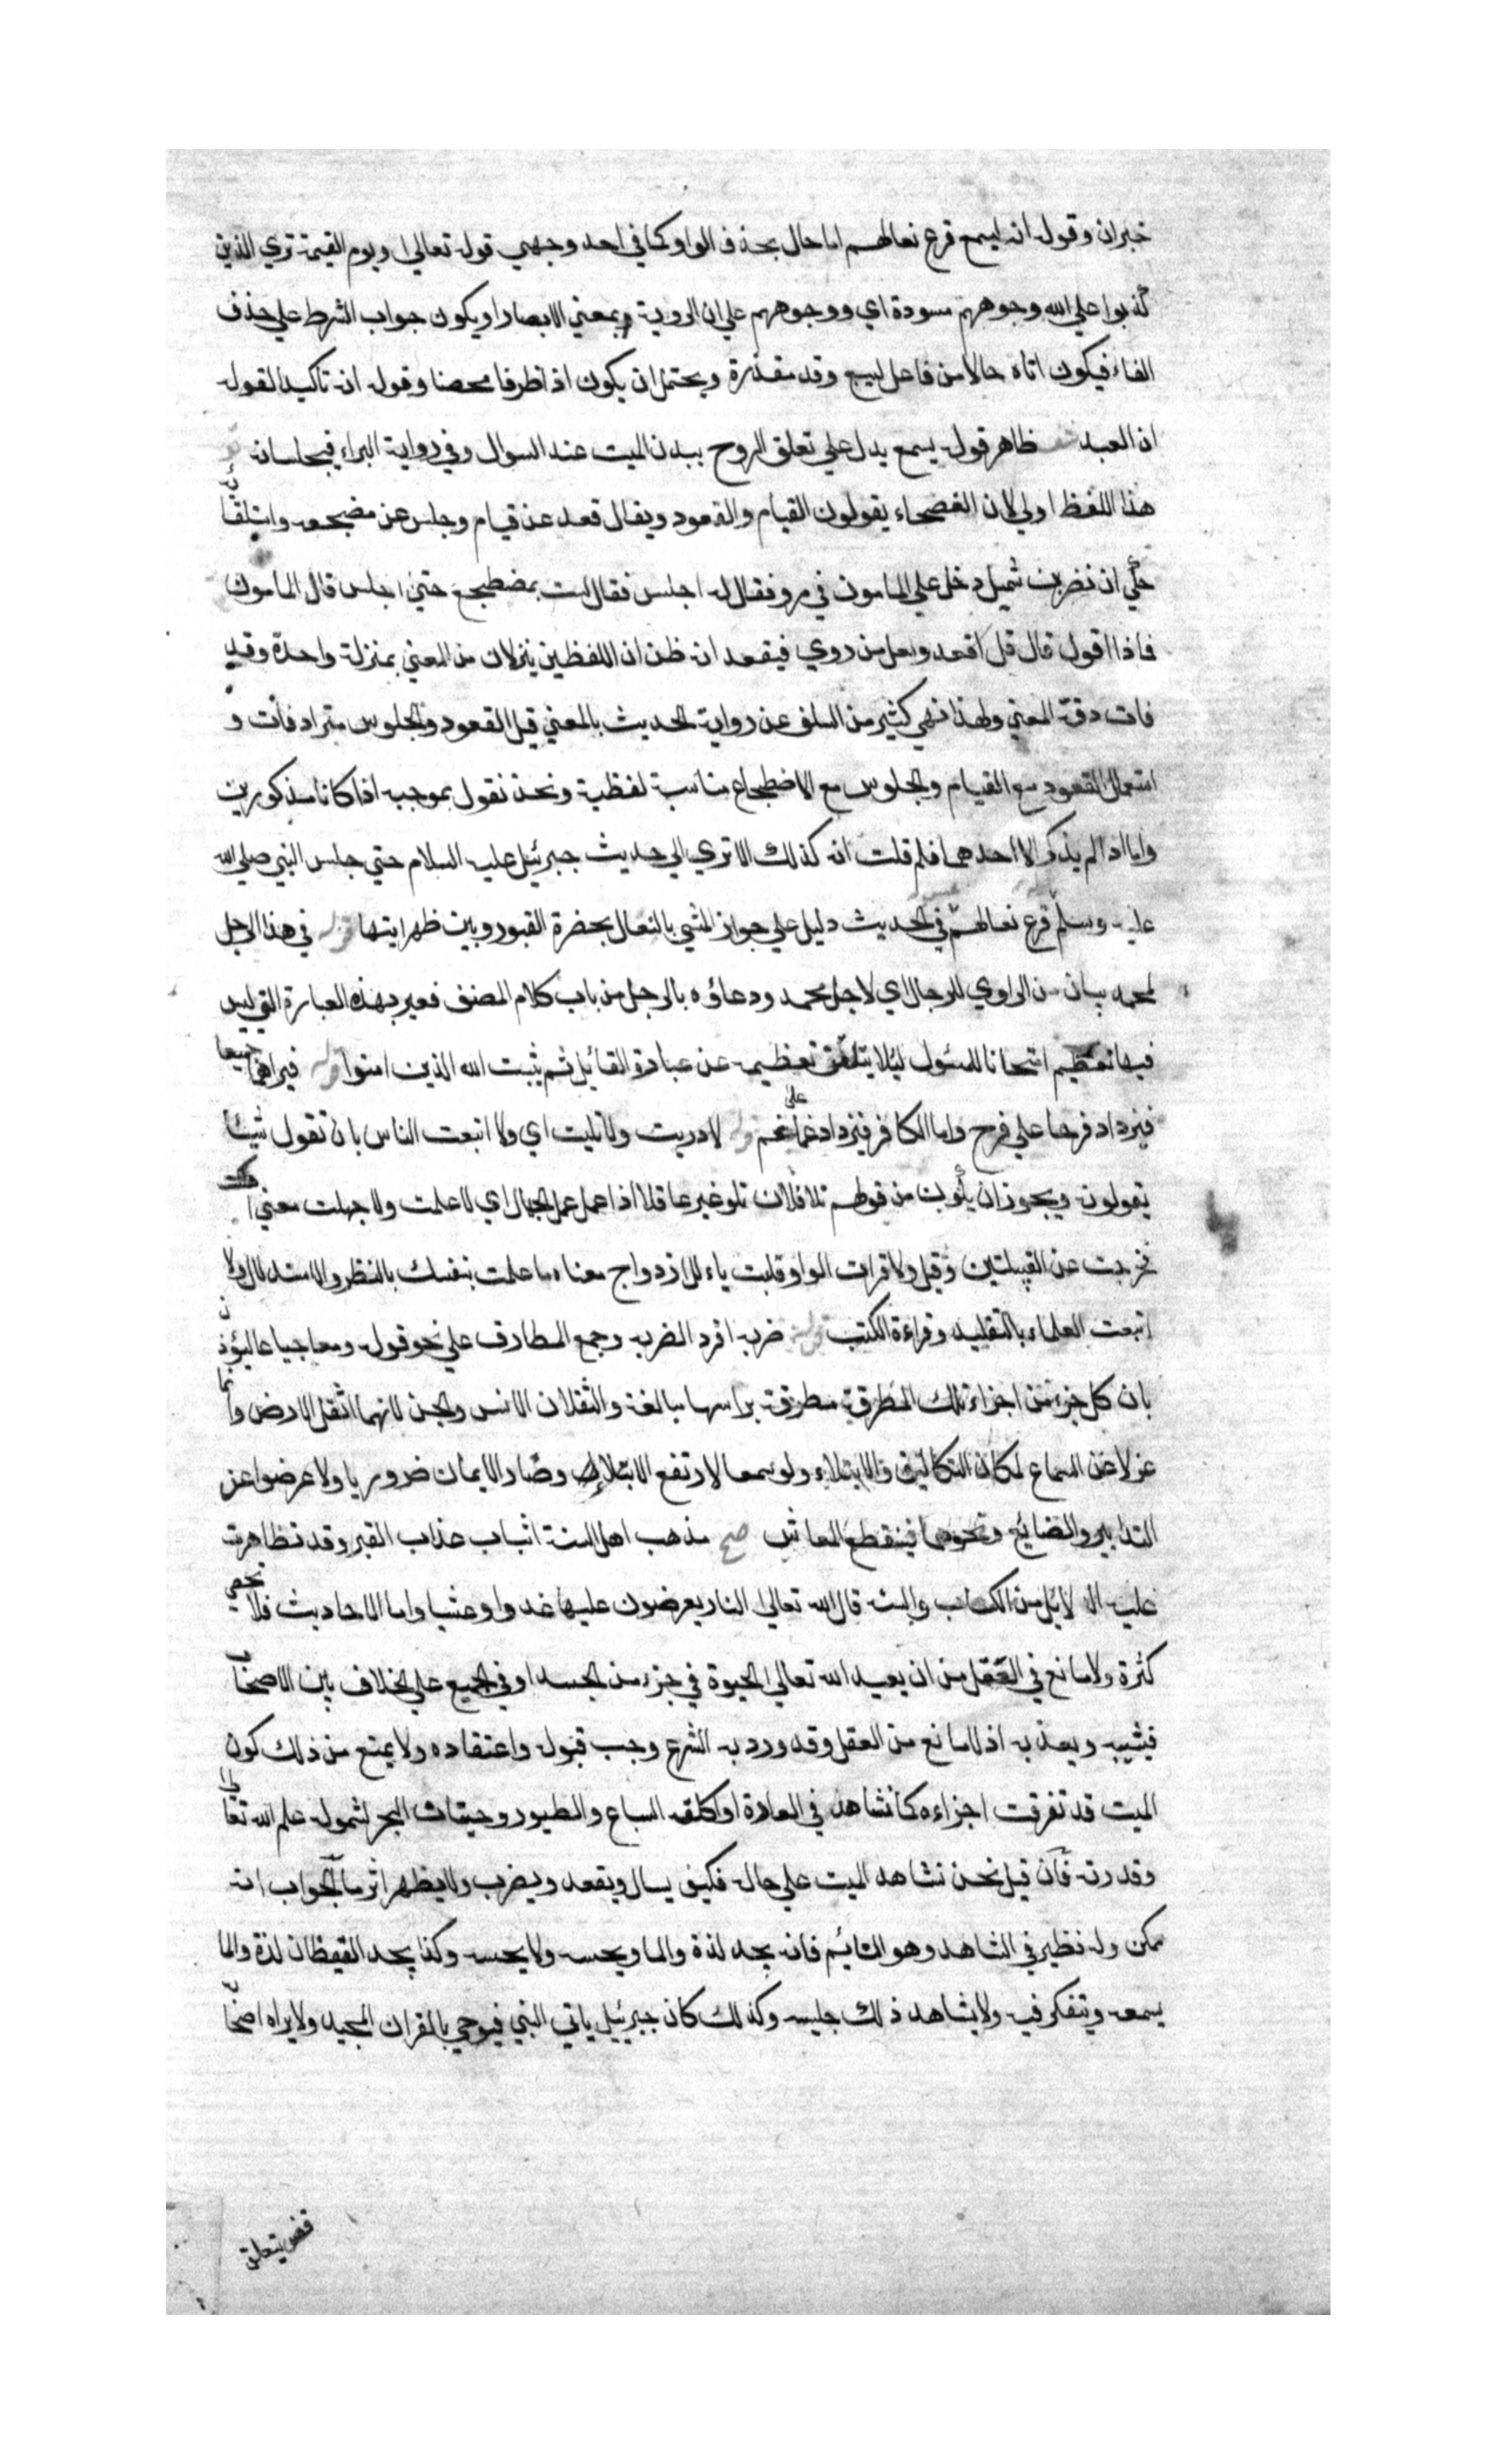 خبر ان وقوله انه ليسمع قرع نعالهم اما حال بحذف الواو كما في احد وجهي قوله تعالي ويوم القيمة تري الذين
كذبوا علي الله وجوههم مسودة اي ووجوههم علي ان الروية بمعني الابصار او يكون جواب الشرط علي حذف
الفاء فيكون اتاه حالا من فاعل ليسمع وقد مقدرة ويحتمل ان يكون اذا ظرفا محضا وقوله انه تاكيد لقوله
ان العبد ظاهر قوله يسمع يدل علي تعلق الروح ببدن الميت عند السوال وفي رواية البراء فيجلسانه
هذا اللفظ اولي لان الفصحاء يقولون القيام والقعود ويقال قعد عن قيام وجلس عن مضجعه واستلقائه
حكي ان نضر بن شميل دخل علي المامون في مرو فقال له اجلس فقال لست بمضطجع حتي اجلس قال المامون
فماذا اقول قال قل اقعد ولعل من روي فيقعد انه ظن ان اللفظين ينزلان من المعني بمنزلة واحدة وقد
فاته دقة المعني ولهذا نهي كثير من السلف عن رواية الحديث بالمعني قيل القعود والجلوس مترادفان و
استعمال القعود مع القيام والجلوس مع الاضطجاع مناسبة لفظية ونحن نقول بموجبه اذا كانا مذكورين
واما اذا لم يذكر الا احدهما فلم قلت انه كذلك الا تري الي حديث جبرئيل عليه السلام حتي جلس النبي صلي الله
عليه وسلم قرع نعالهم في الحديث دليل علي جواز المشي بالنعال بحضرة القبور وبين ظهرانيها قوله في هذا الرجل
لمحمد بيان من الراوي للرجل اي لاجل محمد ودعاؤه بالرجل من باب كلام المصنف فعبر بهذه العبارة التي ليس
فيها تعظيم امتحانا للمسئول ليلا يتلقن تعظيمه عن عبارة القائل ثم يثبت الله الذين امنوا قوله فيراهما جميعا
فيزداد فرحا علي فرح واما الكافر فيزداد غما علي غم قوله لا دريت ولا تليت اي ولا اتبعت الناس بان تقول شيئا
يقولونه ويجوز ان يكون من قولهم تلا فلان تلو غير عاقل اذا عمل عمل الجهال اي لا علمت ولا جهلت معني
فخرجت عن القبيلتين وقيل ولا قرات الواو قلبت ياء للازدواج معناه ما علمت بنفسك بالنظر والاستدلال ولا
اتبعت العلماء بالتقليد وقراءة الكتب قوله ضربة افرد الضربة وجمع المطارق علي نحو قوله ومعا جياعا ليؤذن
بان كل جزء من اجزاء تلك المطرقة مطرقة براسها مبالغة والثقلان الانس والجن لانهما اثقل الارض وانما
عزلا عن السماع لمكان التكاليف والابتلاء ولو سمعا لارتفع الابتلاء وصار الايمان ضروريا ولاعرضوا عن
التدابير والصنائع ونحوهما فينقطع المعاش صح مذهب اهل السنة اثبات عذاب القبر وقد تظاهرت
عليه الدلائل من الكتاب والسنة قال الله تعالي النار يعرضون عليها غدوا وعشيا واما الاحاديث فلا تحصي
كثرة ولا مانع في العقل من ان يعيد الله تعالي الحيوة في جزء من الجسد او في الجميع علي الخلاف بين الاصحاب
فيثيبه ويعذبه اذ لا مانع من العقل وقد ورد به الشرع وجب قبوله واعتقاده ولا يمنع من ذلك كون
الميت قد تفرقت اجزاءه كما نشاهد في العادة او اكلته السباع والطيور وحيتان البحر لشمول علم الله تعالي
وقدرته فان قيل نحن نشاهد الميت علي حاله فكيف يسال ويقعد ويضرب ولا يظهر اثر ما الجواب انه
ممكن وله نظير في الشاهد وهو النائم فانه يجد لذة والما ويحسه ولا يحسه وكذا يجد اليقظان لذة والما
يسمعه ويتفكر فيه ولا يشاهد ذلك جليسه وكذلك كان جبرئيل ياتي النبي فيوحي بالقران المجيد ولا يراه اصحابه